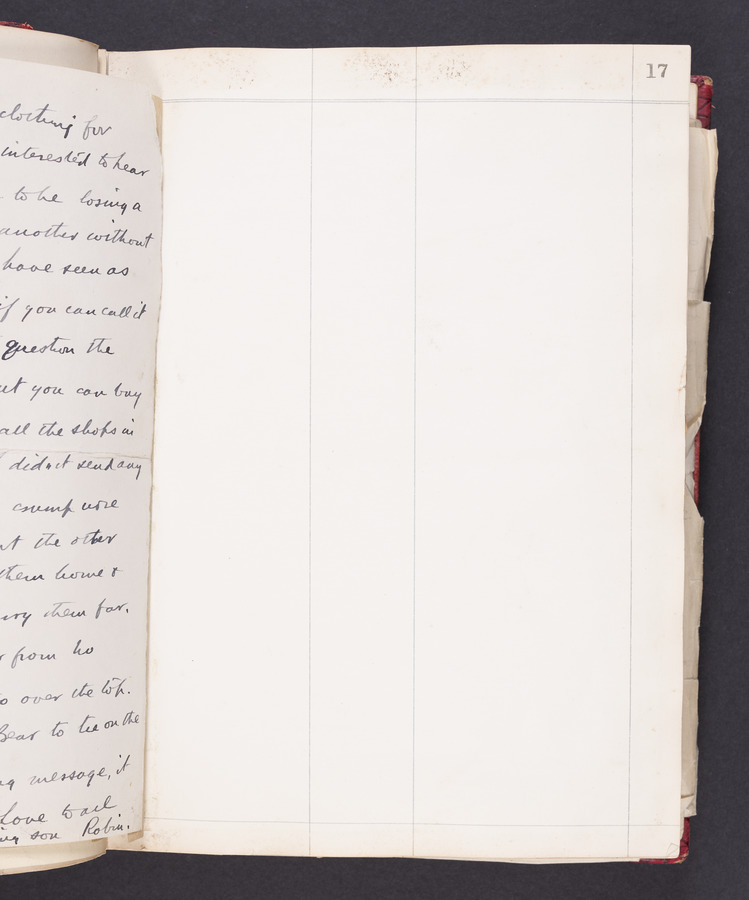 clothing for
interested to hear
to be losing a
another without
have seen as
if you can call it
question the
you can buy
all the shops in
didn't send any
the other
them home &
them far.
from
over the top.
Bear to tie on the
message, it
Love to all
son Robin.
17